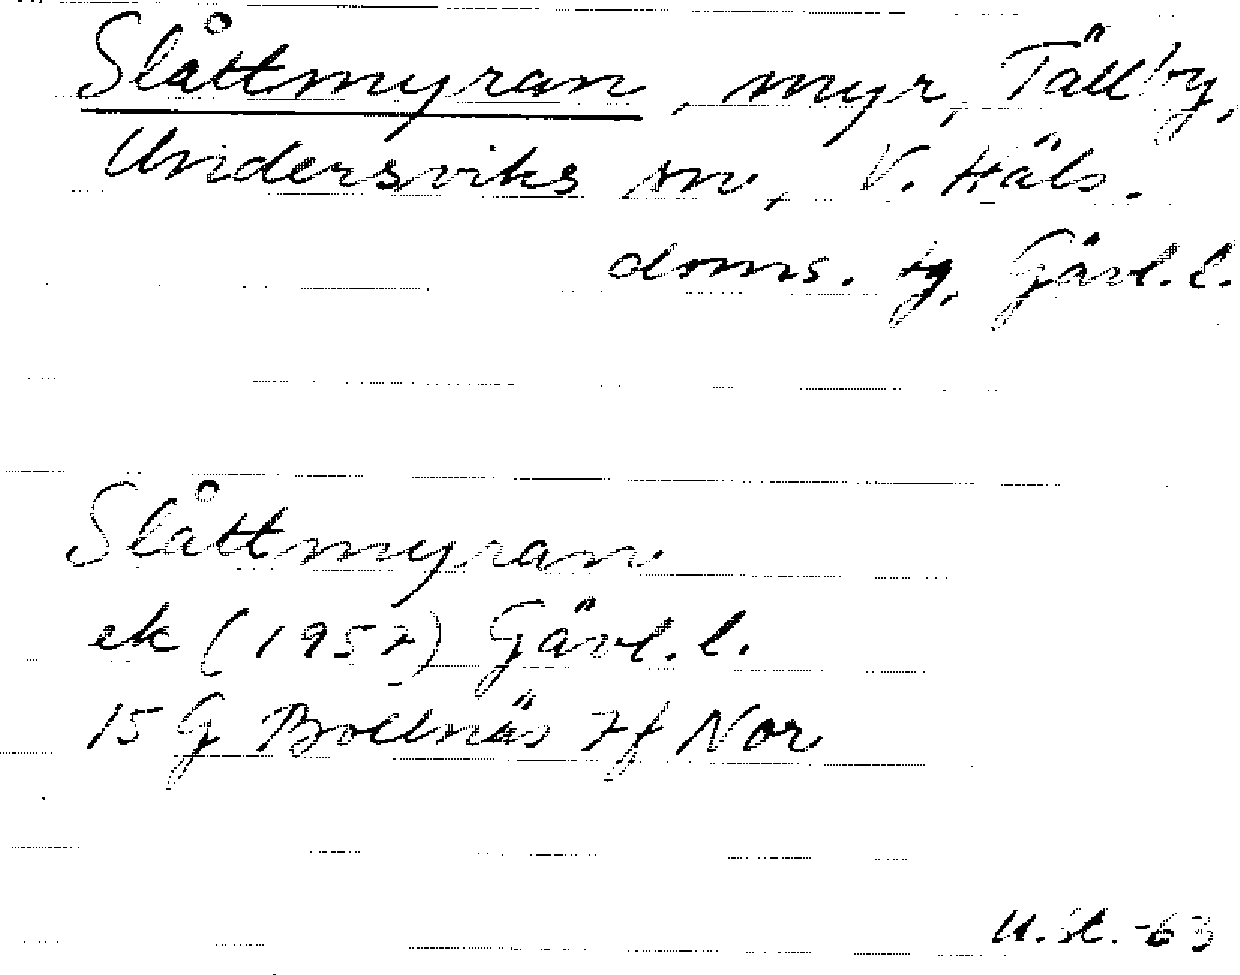 Slåttmyran, myr, Tällby,
Undersviks sn, V. Häls.
doms. tg, Gävl.l.
Slåttmyran
ek (1957) Gävl.l.
15 G Bollnäs 7f Nor
U.St.-63